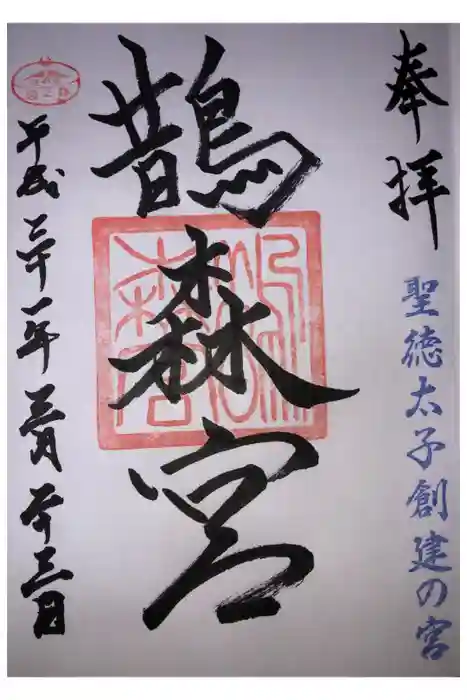 奉拝
聖徳太子創建の宮
鵲森宮
平成三十一年三月二十三日